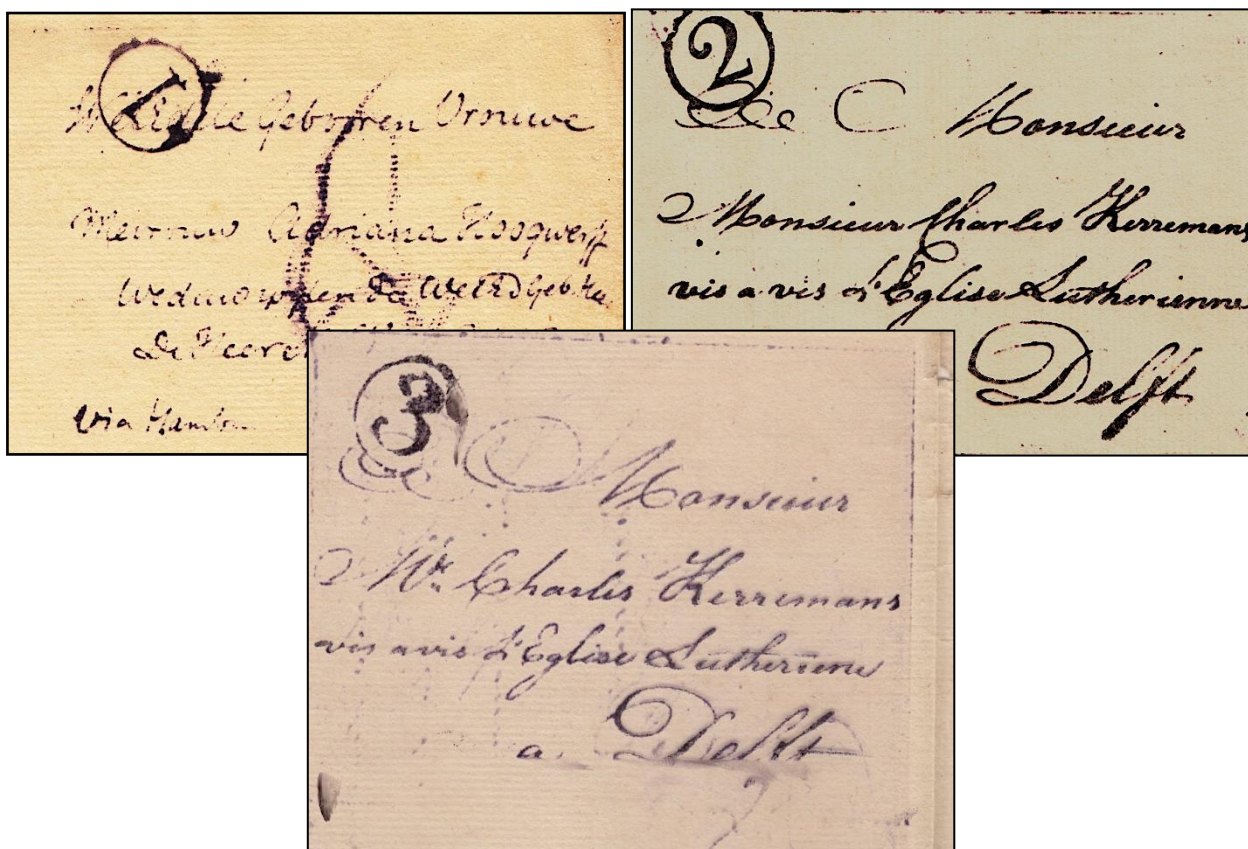 1
Geboren Vrouwe
Mevrouw Adriana Hoogwerff
De Heer
via Hambu
2
Monsieur
Monsieur Charles Herremans
vis a vis d'Eglise Lutherienne
Delft
3
Monsieur
Mr. Charles Herremans
vis a vis d'Eglise Lutheriene
a Delft